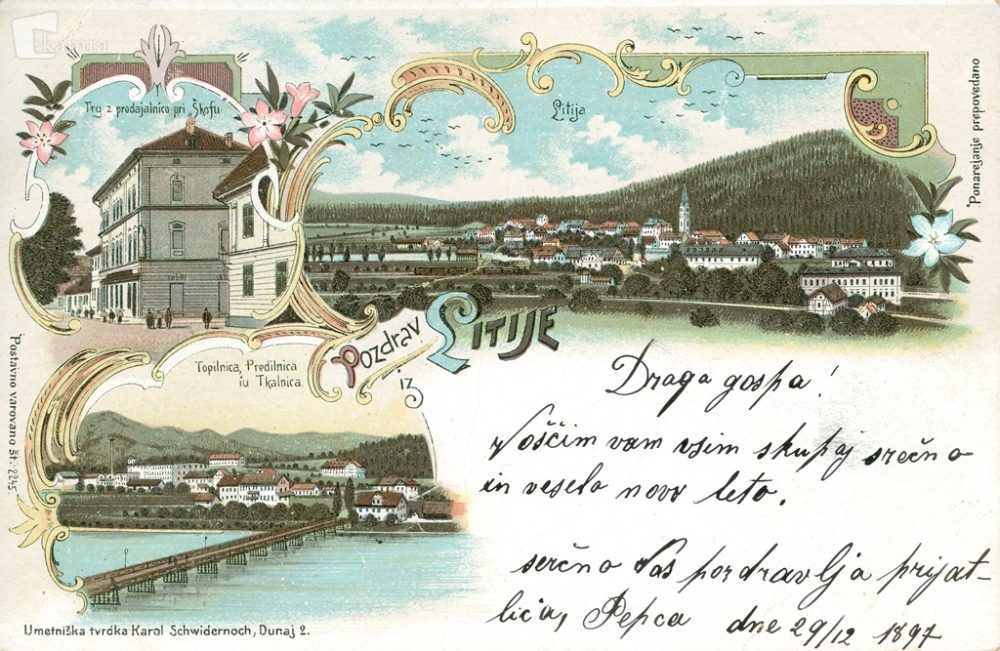 kamra
Trg z prodajalnico pri Škofu.
Litija
Ponarejanje prepovedano
Pozdrav iz LITIJE
Topilnica, Predilnica
iu Tkalnica.
Postavno varovano Št: 2245
Draga gospa!
Voščim vam vsim skupaj srečno
in veselo novo leto.
serčno Vas pozdravlja prijat-
lica, Pepca dne 29/12 1897
Umetniška tvrdka Karol Schwidernoch, Dunaj 2.